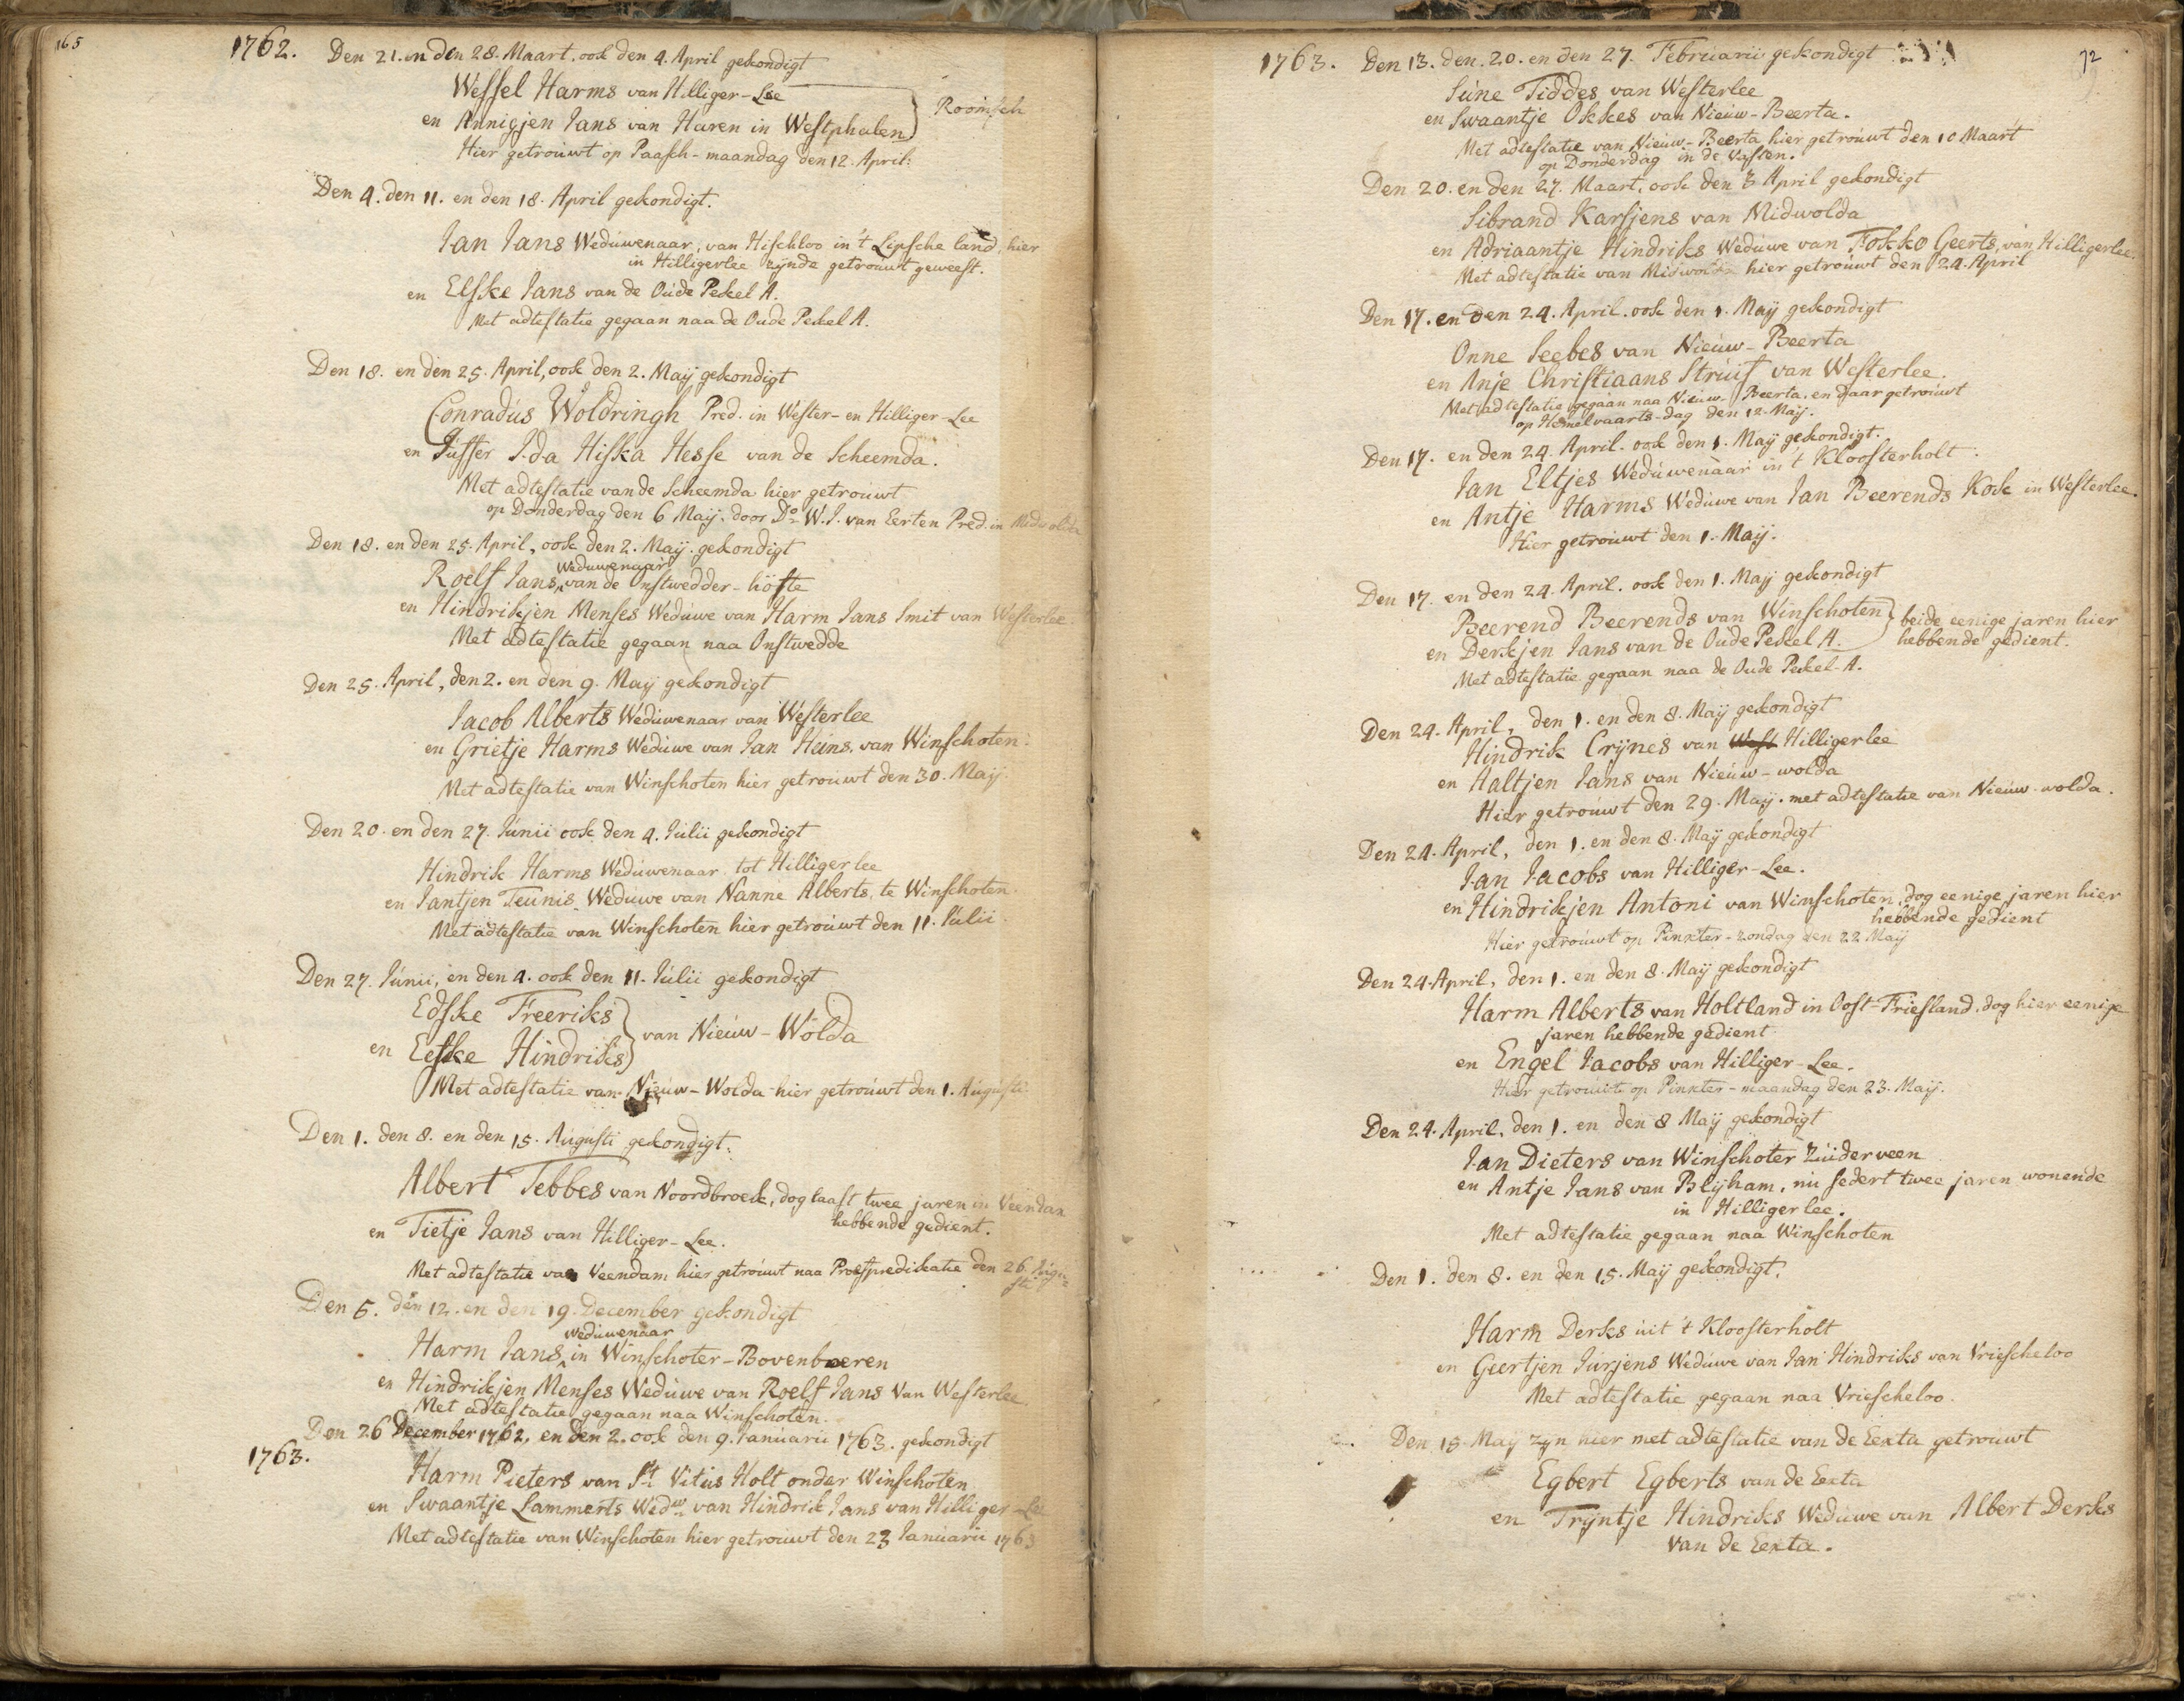 165
1762. Den 21. en den 28. Maart, ook den 4. April gekondigt
Wessel Harms van Hilliger-Lee
en Annigjen Jans van Haren in Westphalen } Roomsch
Hier getrouwt op Paasch-maandag den 12. April.
Den 4. den 11. en den 18. April gekondigt.
Jan Jans Weduwenaar, van Hischloo in 't Lipsche land, hier
in Hilligerlee zynde getrouwt geweest.
en Elske Jans van de Oude Pekel A.
Met adtestatie gegaan naa de Oude Pekel A.
Den 18. en den 25. April, ook den 2. Maij gekondigt
Conradus Woldringh Pred. in Wester- en Hilliger-Lee
en Juffer Ida Hiska Hesse van de Scheemda.
Met adtestatie van de Scheemda hier getrouwt
op Donderdag den 6 Maij, door Do. W. J. van Eerten Pred. in Midwolda
Den 18. en den 25. April, ook den 2. Maij. gekondigt
Weduwenaar
Roelf Jans, van de Onstwedder-höfte
en Hindrikjen Menses Weduwe van Harm Jans Smit van Westerlee.
Met adtestatie gegaan naa Onstwedde
Den 25. April, den 2. en den 9. Maij gekondigt
Jacob Alberts Weduwenaar van Westerlee
en Grietje Harms Weduwe van Jan Heins, van Winschoten.
Met adtestatie van Winschoten hier getrouwt den 30. Maij.
Den 20. en den 27. Junii ook den 4. Julii gekondigt
Hindrik Harms Weduwenaar tot Hilligerlee
en Jantjen Teunis Weduwe van Nanne Alberts, te Winschoten.
Met adtestatie van Winschoten hier getrouwt den 11. Julii.
Den 27. Junii, en den 4. ook den 11. Julii gekondigt
Edske Freeriks
en Eeske Hindriks } van Nieuw-Wolda
Met adtestatie van Nieuw-Wolda hier getrouwt den 1. Augusti.
Den 1. den 8. en den 15. Augusti gekondigt.
Albert Tebbes van Noordbroek, dog laast twee jaren in Veendam
hebbende gedient.
en Tietje Jans van Hilliger-Lee.
Met adtestatie van Veendam hier getrouwt naa Proefpredikatie den 26 Augu-
sti
Den 5. den 12. en den 19. December gekondigt
weduwenaar
Harm Jans, in Winschoter-Bovenbueren
en Hindrikjen Menses Weduwe van Roelf Jans Van Westerlee
Met adtestatie gegaan naa Winschoten.
Den 26 December 1762. en den 2. ook den 9. Januarii 1763. gekondigt
1763.
Harm Pieters van St. Vitus Holt onder Winschoten
en Swaantje Lammerts Wedw. van Hindrik Jans van Hilliger-Lee
Met adtestatie van Winschoten hier getrouwt den 23 Januarii 1763
72
1763. Den 13. den. 20. en den 27. Februarii gekondigt
Süne Tiddes van Westerlee
en Swaantje Okkes van Nieuw-Beerta.
Met adtestatie van Nieuw-Beerta hier getrouwt den 10 Maart
op Donderdag in de Vasten.
Den 20. en den 27. Maart, ook den 3 April gekondigt
Sibrand Karsjens van Midwolda
en Adriaantje Hindriks Weduwe van Fokko Geerts, van Hilligerlee.
Met adtestatie van Midwolda hier getrouwt den 24. April
Den 17. en den 24. April. ook den 1. Maij gekondigt
Onne Seebes van Nieuw-Beerta
en Anje Christiaans Struif van Westerlee.
Met adtestatie gegaan naa Nieuw-Beerta. en daar getrouwt
op Hemelvaarts-dag den 12. Maij.
Den 17. en den 24. April. ook den 1. Maij gekondigt.
Jan Eltjes Weduwenaar in 't Kloosterholt.
en Antje Harms Weduwe van Jan Beerends Kok in Westerlee.
Hier getrouwt den 1. Maij.
Den 17. en den 24. April. ook den 1. Maij gekondigt
Beerend Beerends van Winschoten } beide eenige jaren hier
en Derkjen Jans van de Oude Pekel A. hebbende gedient.
Met adtestatie gegaan naa de Oude Pekel-A.
Den 24. April, den 1. en den 8. Maij gekondigt
Hindrik Crÿnes van West Hilligerlee
en Aaltjen Jans van Nieuw-wolda
Hier getrouwt den 29. Maij. met adtestatie van Nieuw-wolda.
Den 24. April, den 1. en den 8. Maij gekondigt
Jan Jacobs van Hilliger-Lee.
en Hindrikjen Antoni van Winschoten, dog eenige jaren hier
hebbende gedient
Hier getrouwt op Pinxter-zondag den 22 Maij
Den 24. April, den 1. en den 8. Maij gekondigt
Harm Alberts van Holtland in Oost-Friesland, dog hier eenige
jaren hebbende gedient
en Engel Jacobs van Hilliger-Lee.
Hier getrouwt op Pinxter-maandag den 23. Maij.
Den 24. April, den 1. en den 8 Maij gekondigt
Jan Dieters van Winschoter Zuiderveen
en Antje Jans van Blijham, nu sedert twee jaren wonende
in Hilligerlee.
Met adtestatie gegaan naa Winschoten
Den 1. den 8. en den 15. Maij gekondigt.
Harm Derks uit 't Kloosterholt
en Geertjen Jurjens Weduwe van Jan Hindriks van Vriescheloo
Met adtestatie gegaan naa Vriescheloo.
Den 15. Maij zyn hier met adtestatie van de Eexta getrouwt
Egbert Egberts van de Eexta
en Trijntje Hindriks Weduwe van Albert Derks
van de Eexta.